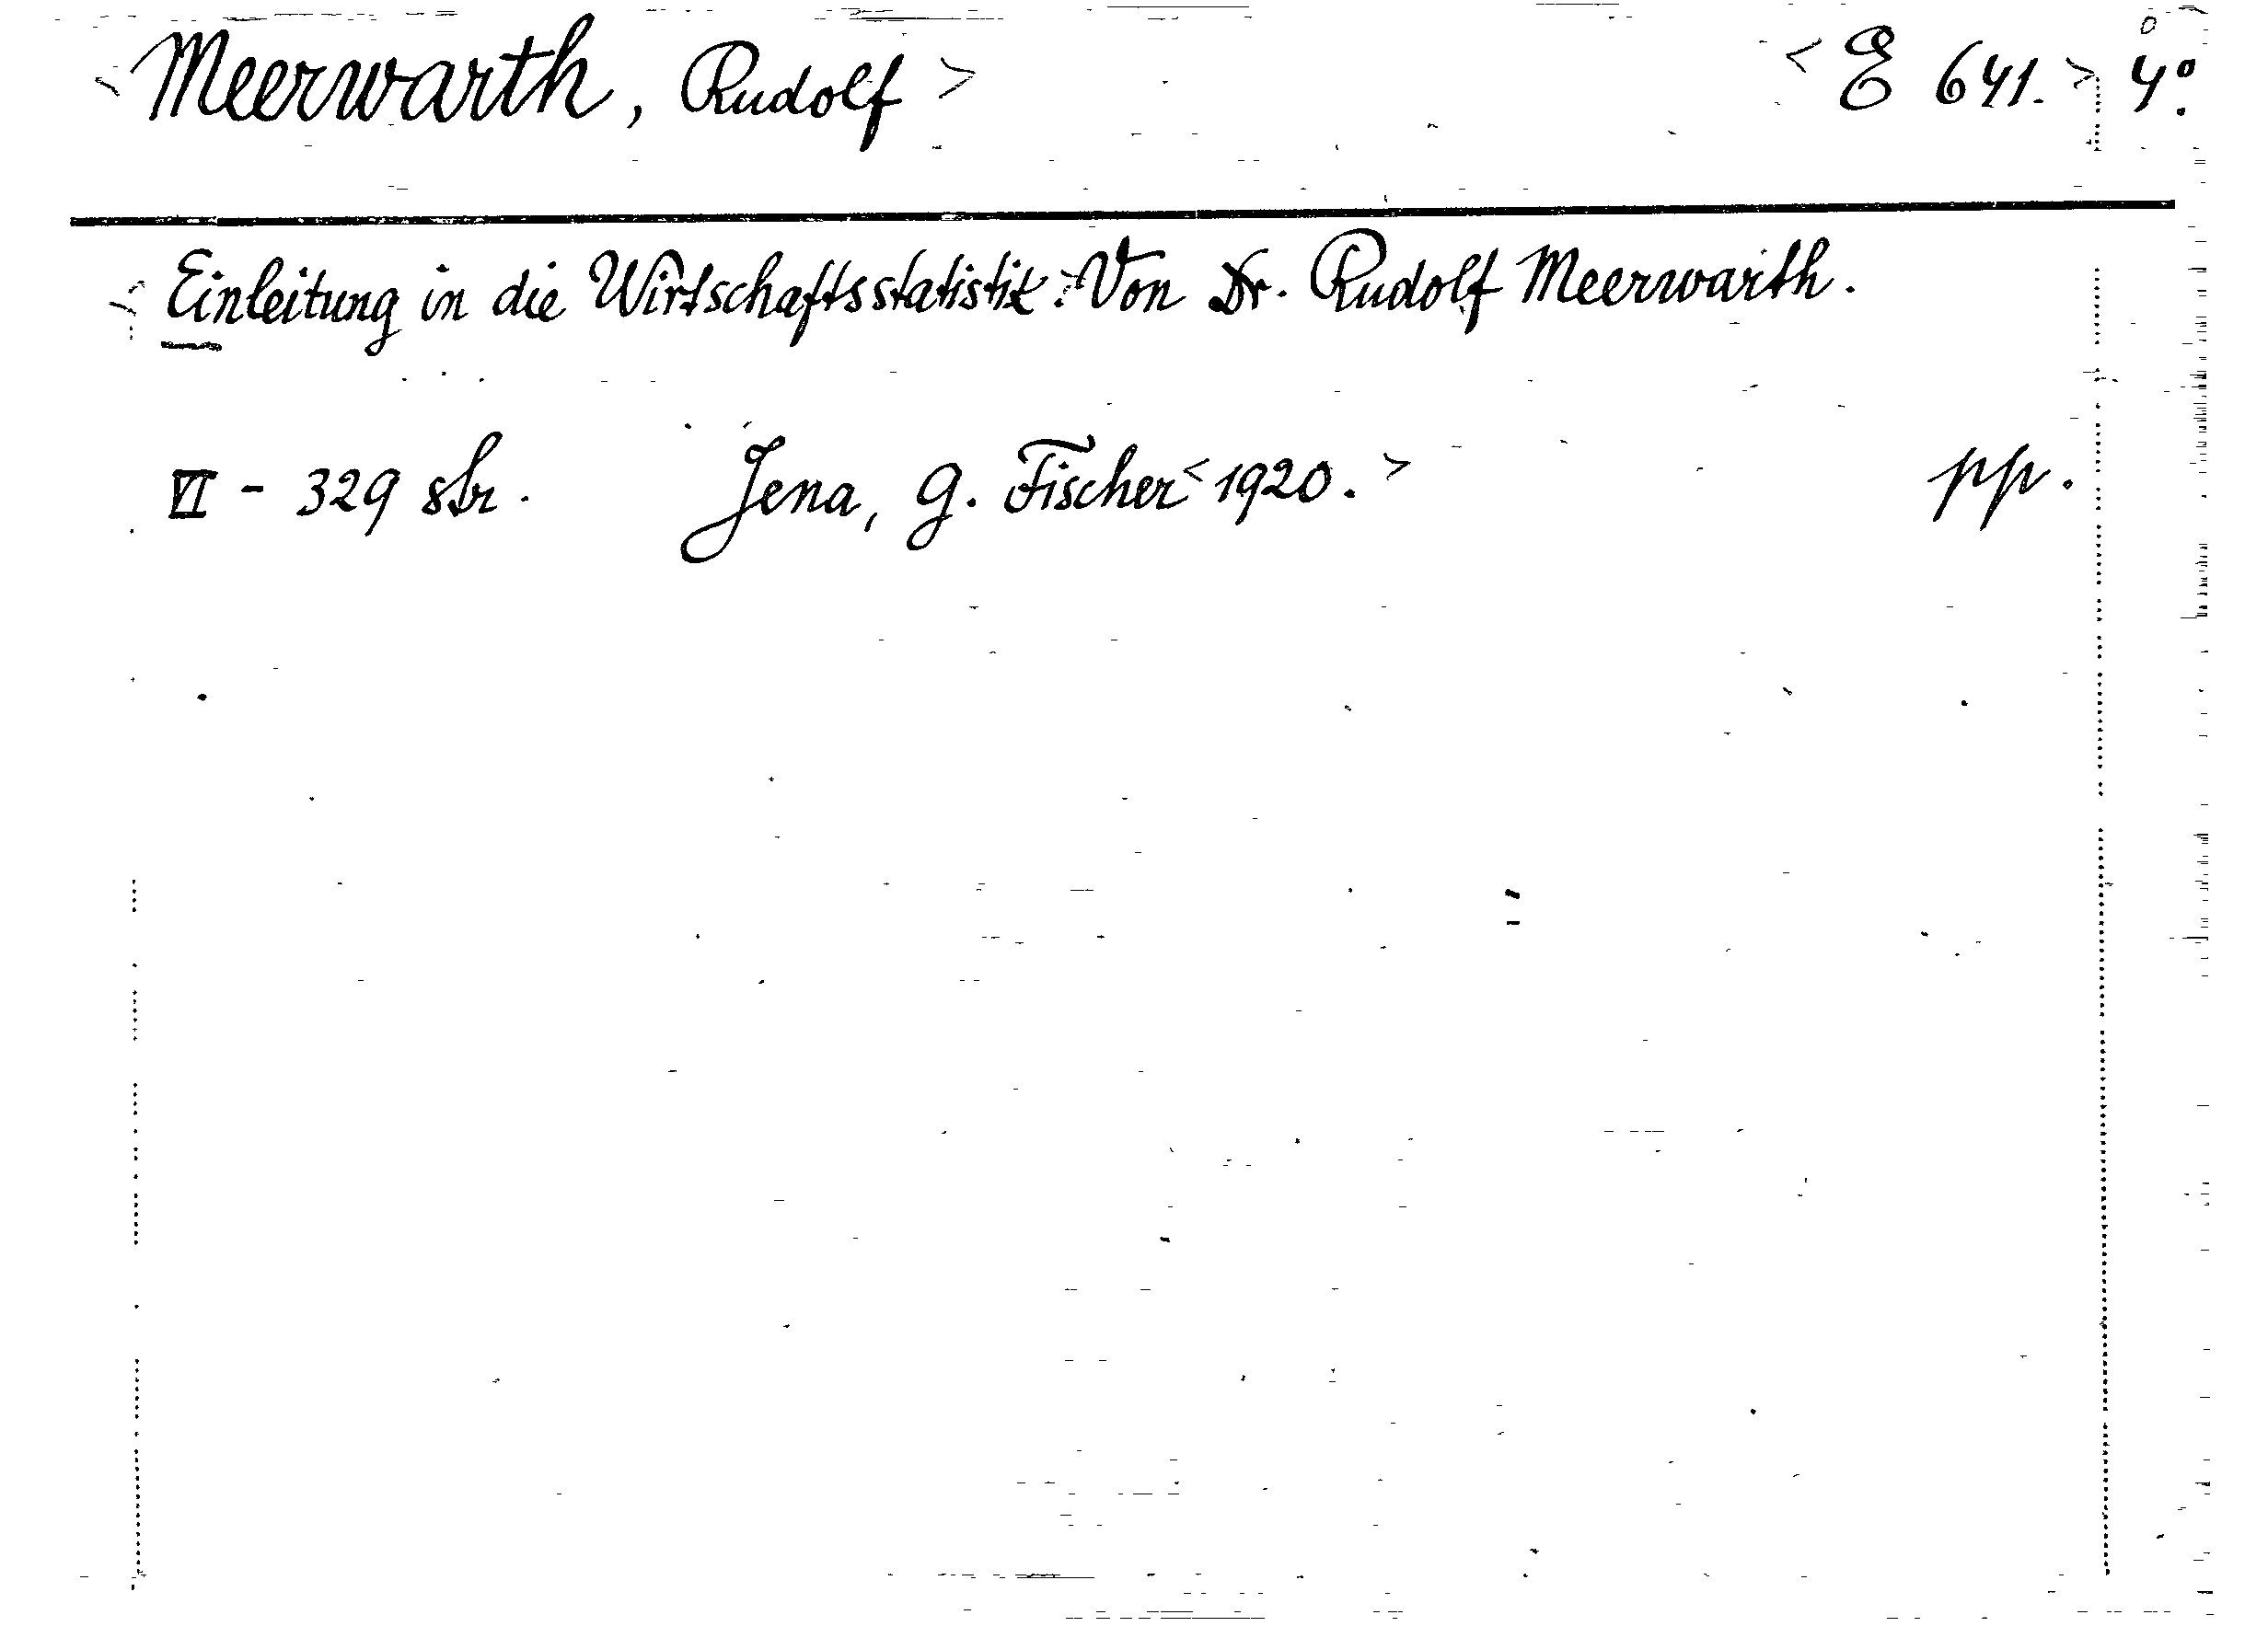 <Meerwarth, Rudolf> <E 641.> 4º.
<Einleitung in die Wirtschaftsstatistik.> Von Dr. Rudolf Meerwarth.
VI - 329 str. Jena, G. Fischer <1920.> pp.